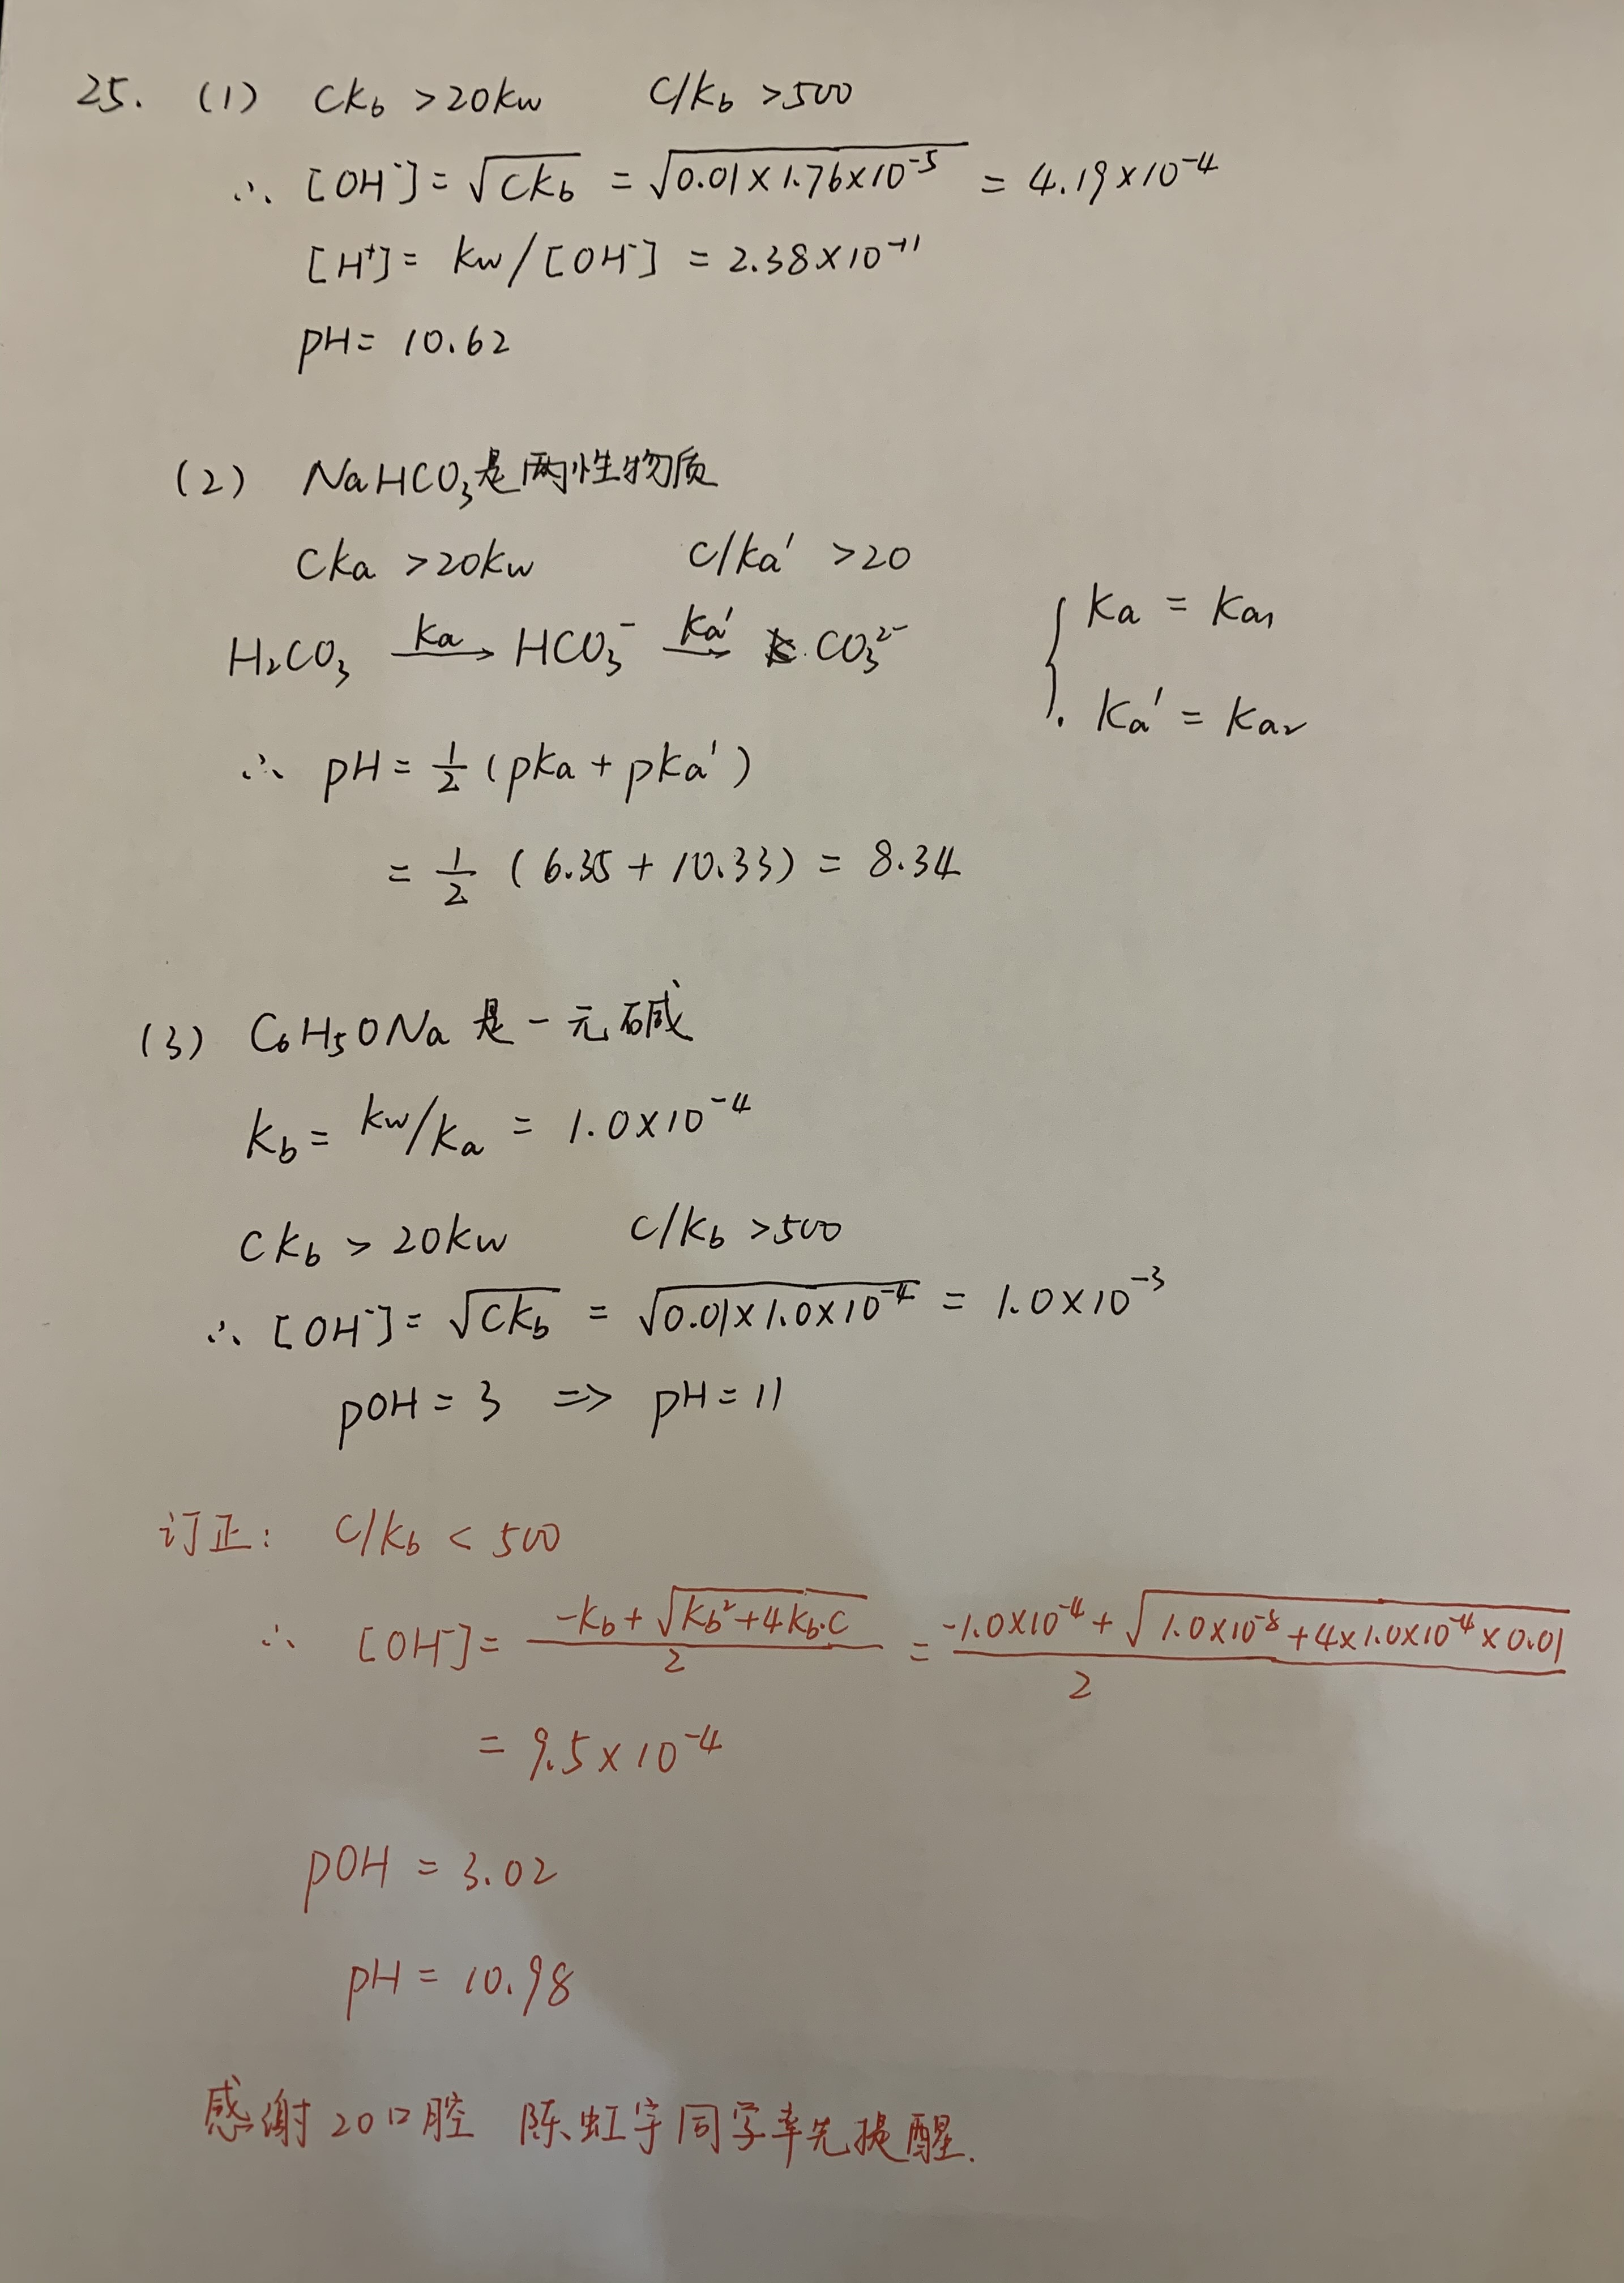 25. (1) CKb >20Kw C/Kb >500
∴ [OH⁻]= √CKb = √0.01×1.76×10⁻⁵ = 4.19×10⁻⁴
[H⁺]= Kw/[OH⁻] = 2.38×10⁻¹¹
pH= 10.62
(2) NaHCO₃是两性物质
CKa >20Kw C/Ka' >20
H₂CO₃ —Ka→ HCO₃⁻ —Ka'→ CO₃²⁻ { Ka = Ka₁
Ka' = Ka₂
∴ pH= 1/2 (pKa + pKa')
= 1/2 (6.35 + 10.33) = 8.34
(3) C₆H₅ONa 是一元碱
Kb= Kw/Ka = 1.0×10⁻⁴
CKb > 20Kw C/Kb >500
∴ [OH⁻]= √CKb = √0.01×1.0×10⁻⁴ = 1.0×10⁻³
pOH = 3 => pH= 11
订正: C/Kb < 500
∴ [OH⁻]= (-Kb+√Kb²+4Kb·C)/2 = (-1.0×10⁻⁴+√1.0×10⁻⁸+4×1.0×10⁻⁴×0.01)/2
= 9.5×10⁻⁴
pOH = 3.02
pH = 10.98
感谢20口腔 陈虹宇同学率先提醒.